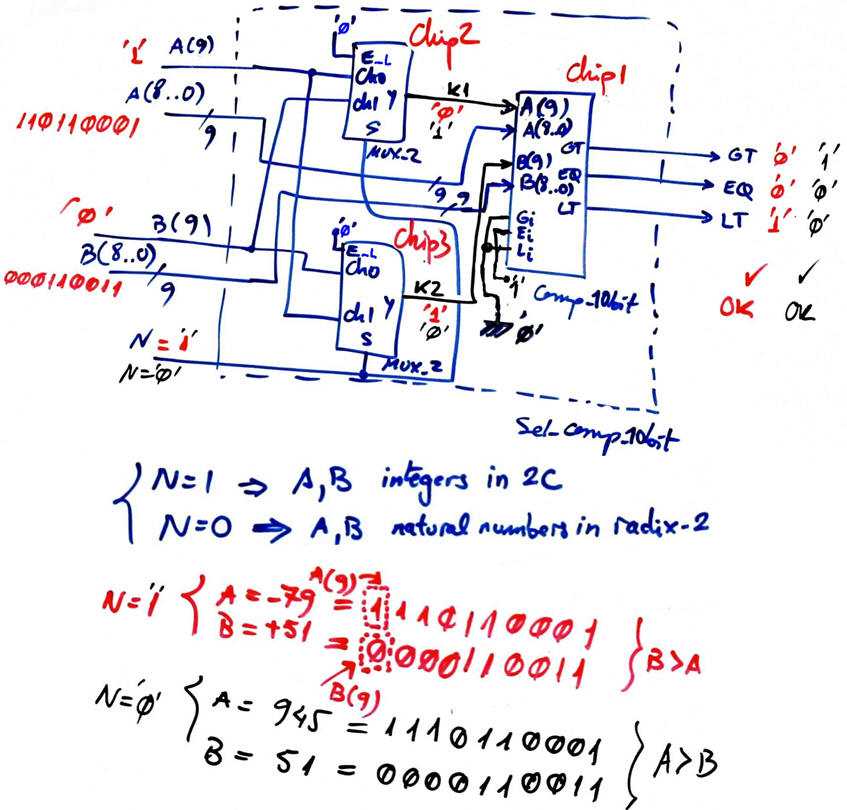 '0'
Chip2
'1' A(9)
E_L
Ch0
ch1 Y
S
MUX_2
K1
'0'
'1'
A(8..0)
110110001
9
Chip1
A(9)
A(8..0)
B(9)
B(8..0)
GT
EQ
LT
Gi
Ei
Li
GT '0' '1'
EQ '0' '0'
LT '1' '0'
✓ ✓
OK OK
9
9
'0' B(9)
B(8..0)
000110011
9
'0'
Chip3
E_L
Ch0
ch1 Y
S
MUX_2
K2
'1'
'0'
'1'
'0'
Comp_10bit
N = '1'
N='0'
Sel_comp_10bit
N=1 ⇒ A,B integers in 2C
N=0 ⇒ A,B natural numbers in radix-2
A(9)
N='1' { A = -79 = 1110110001
B = +51 = 0000110011 } B>A
B(9)
N='0' { A = 945 = 1110110001
B = 51 = 0000110011 } A>B